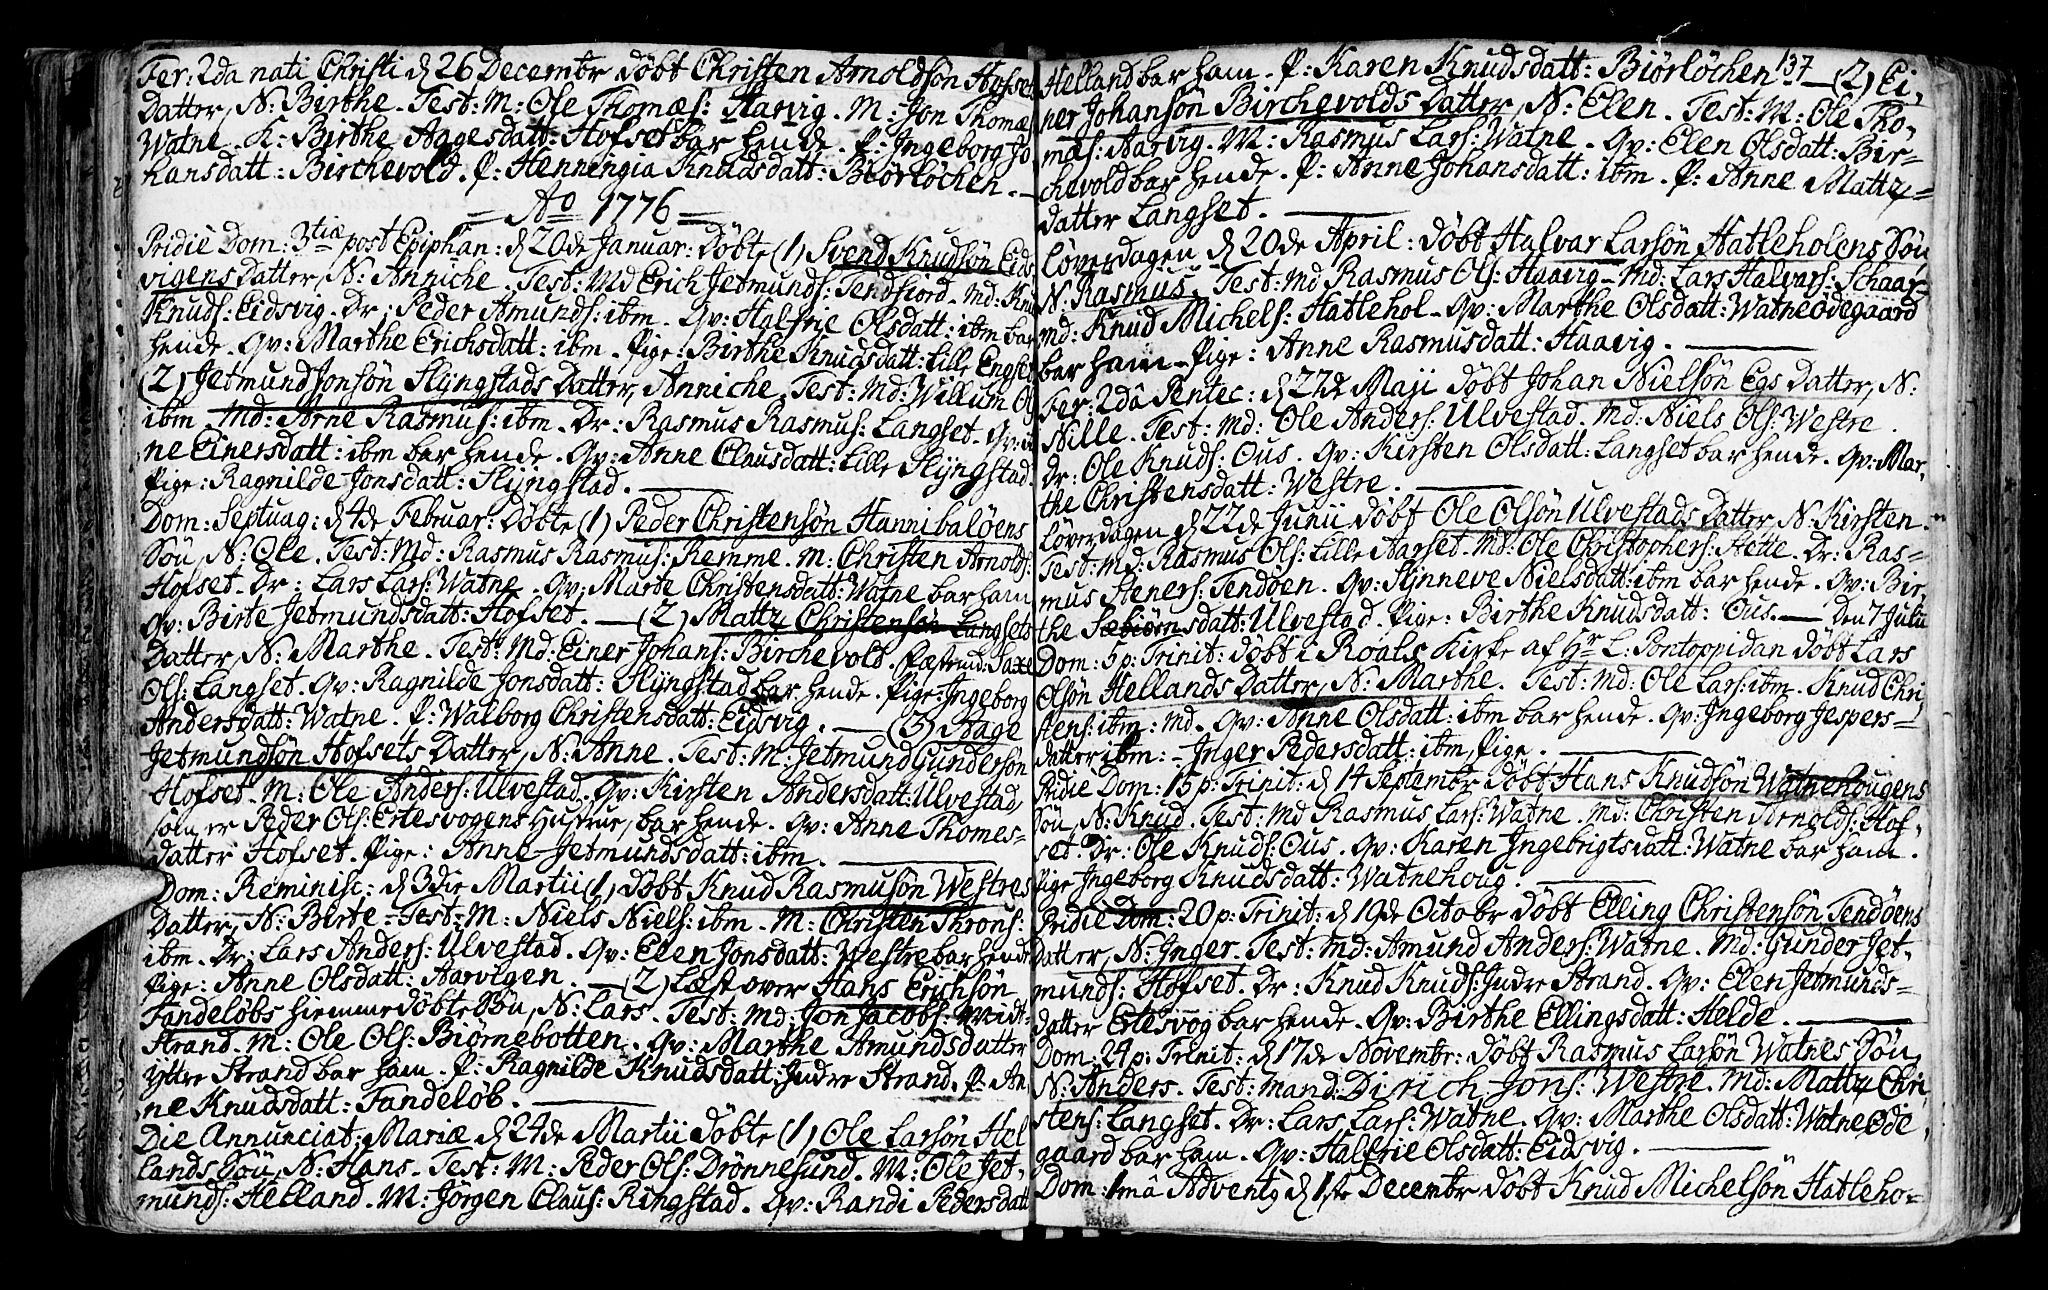 Fer: 2da nati Christi d 26 Decembr døbt Christen Arnoldsøn Hofset
Datter, N: Birthe. Test: M: Ole Thomæs: Harvig. M: Jon Thomæs
Watne. K: Birthe Aagesdatt: Hofset bar hende. P: Ingeborg Jo
hansdatt: Birchevold. P: Henningia Knudsdatt: Biørløchen.
Ao 1776
Pridie Dom: 3tiæ post Epiphan: d 20de Januar: Døbte (1) Svend Knudsøn Eids
vigens Datter, N: Anniche. Test: Md Erich Jetmunds: Tendfiord. Md: Knud
Knuds: Eidsvig. Dr: Peder Amunds: ibm. Qv: Halfrie Olsdatt: ibm bar
hende. Qv: Marthe Erichsdatt: ibm. Pige: Birthe Knudsdatt: Lille Engset
(2) Jetmund Jonsøn Slyngstads Datter, Anniche. Test: Md: Willum Ols
ibm Md: Arne Rasmus: ibm. Dr: Rasmus Rasmus: Langset. Qv:
ne Einersdatt: ibm bar hende. Qv: Anne Clausdatt: Lille Slyngstad
Pige: Ragnilde Jonsdatt: Slyngstad.
Dom: Septuag: d 4de Februar: Døbte (1) Peder Christensøn Hannibaløens
Søn, N: Ole. Test: Md: Rasmus Rasmus: Remme. M: Christen Arnolds:
Hofset. Dr: Lars Lars: Watne. Qv: Marte Christensdatt: Watne bar ham
Qv: Birte Jetmundsdatt: Hofset. (2) Mattz Christensøn Langsets
Datter, N: Marthe. Test: Md: Einer Johans: Birchevold. Saxe
Ols: Langset. Qv: Ragnilde Jonsdatt: Slyngstad bar hende. Pige: Ingeborg
Andersdatt: Watne. P: Walborg Christensdatt: Eidsvig. (3) Aage
Jetmundsøn Hofsets Datter, N: Anne. Test: M: Jetmund Gundersøn
Hofset. M: Ole Anders: Ulvestad. Qv: Kirsten Andersdatt: Ulvestad
som er Peder Ols: Ertesvogens Hustrue, bar hende. Qv: Anne Thomes-
datter Hofset. Pige: Anne Jetmundsdatt: ibm.
Dom: Reminisc: d 3die Martii (1) døbt Knud Rasmusøn Westres
Datter, N: Birte. Test: M: Niels Niels: ibm. M: Christen Throns:
ibm. Dr: Lars Anders: Ulvestad. Qv: Elen Jonsdatt: Westre bar hende
Pige: Anne Olsdatt: Aarvigen. (2) Læst over Hans Erichsøn
Fandeløbs hiemmedøbte Søn, N: Lars. Test: Md: Jon Jacobs: Midt-
Strand. M: Ole Ols: Biørnebotten. Qv: Marthe Amundsdatter
Yttre Strand bar ham. P: Ragnilde Knudsdatt: Indre Strand. P: An
ne Knudsdatt: Fandeløb.
Die Annunciat: Mariæ d 24de Martii Døbte (1) Ole Larsøn Hel
lands Søn, N: Hans. Test: M: Peder Ols: Drønnesund. M: Ole Jet-
munds: Helland. M: Jørgen Claus: Ringstad. Qv: Randi Pedersdatt
Helland bar ham. P: Karen Knudsdatt: Biørløchen 137 (2) Ei,
ner Johansøn Birchevolds Datter, N: Elen. Test: M: Ole Tho-
mæs: Aarvig. M: Rasmus Lars: Watne. Qv: Elen Olsdatt: Bir-
chevold bar hende. P: Anne Johansdatt: ibm. P: Anne Mattz-
datter Langset.
Løverdagen d 20de April: døbt Halvar Larsøn Hatleholens Søn,
N: Rasmus. Test: Md Rasmus Ols: Haavig. Md: Lars Halvars: Schaar
Md: Knud Michels: Hatlehol. Qv: Marthe Olsdatt: Watneødegaard
bar ham. Pige: Anne Rasmusdatt: Haavig.
Fer: 2dâ Pentec: d 27de Maji døbt Johan Nielsøn Egs Datter, N:
Nille. Test: Md: Ole Anders: Ulvestad. Md: Niels Ols: Westre.
Dr: Ole Knuds: Ous. Qv: Kirsten Olsdatt: Langset bar hende. Qv: Mar,
the Christensdatt: Westre.
Løverdagen d 22de Junii døbt Ole Olsøn Ulvestads Datter, N: Kirsten.
Test: Md: Rasmus Ols: Lille Aarset. Md: Ole Christophers: Slette. Dr: Ras-
mus Steners: Tendøen. Qv: Synneve Nielsdatt: ibm bar hende. Qv: Bir,
the Sæbiørnsdatt: Ulvestad. Pige: Birthe Knudsdatt: Ous. Den 7 Julii
Dom: 5 p: Trinit: døbt i Roals Kirke af Hr L: Pontoppidan døbt Lars
Olsøn Hellands Datter, N: Marthe. Test: Md: Ole Lars: ibm. Knud Chri
stens: ibm: Md. Qv: Anne Olsdatt: ibm bar hende. Qv: Ingeborg Jespers-
datter ibm. Inger Pedersdatt: ibm, Pige.
Pridie Dom: 15 p: Trinit: d 14 Septembr døbt Hans Knudsøn Watnehougens
Søn, N: Knud. Test: Md Rasmus Lars: Watne. Md: Christen Arnolds: Hof,
set. Dr: Ole Knuds: Ous. Qv: Karen Ingebrigtsdatt: Watne bar ham.
Pige Ingeborg Knudsdatt: Watnehoug.
Pridie Dom: 20 p: Trinit: d 19de Octobr døbt Elling Christensøn Tendøens
Datter, N: Inger. Test: Md: Amund Anders: Watne. Md: Gunder Jet-
munds: Hofset. Dr: Knud Knuds: Indre Strand. Qv: Elen Jetmunds-
datter Ertesvog bar hende. Qv: Birthe Ellingsdatt: Helde.
Dom: 24 p: Trinit: d 17de Novembr: døbt Rasmus Larsøn Watnes Søn,
N: Anders. Test: Mand: Dirich Jons: Westre. Md: Mattz Chri,
stens: Langset. Dr: Lars Lars: Watne. Qv: Marthe Olsdatt: Watne Øde,
gaard bar ham. Qv: Halfrie Olsdatt: Eidsvig.
Dom: 1mâ Adventg d 1ste Decembr døbt Knud Michelsøn Hatleho-